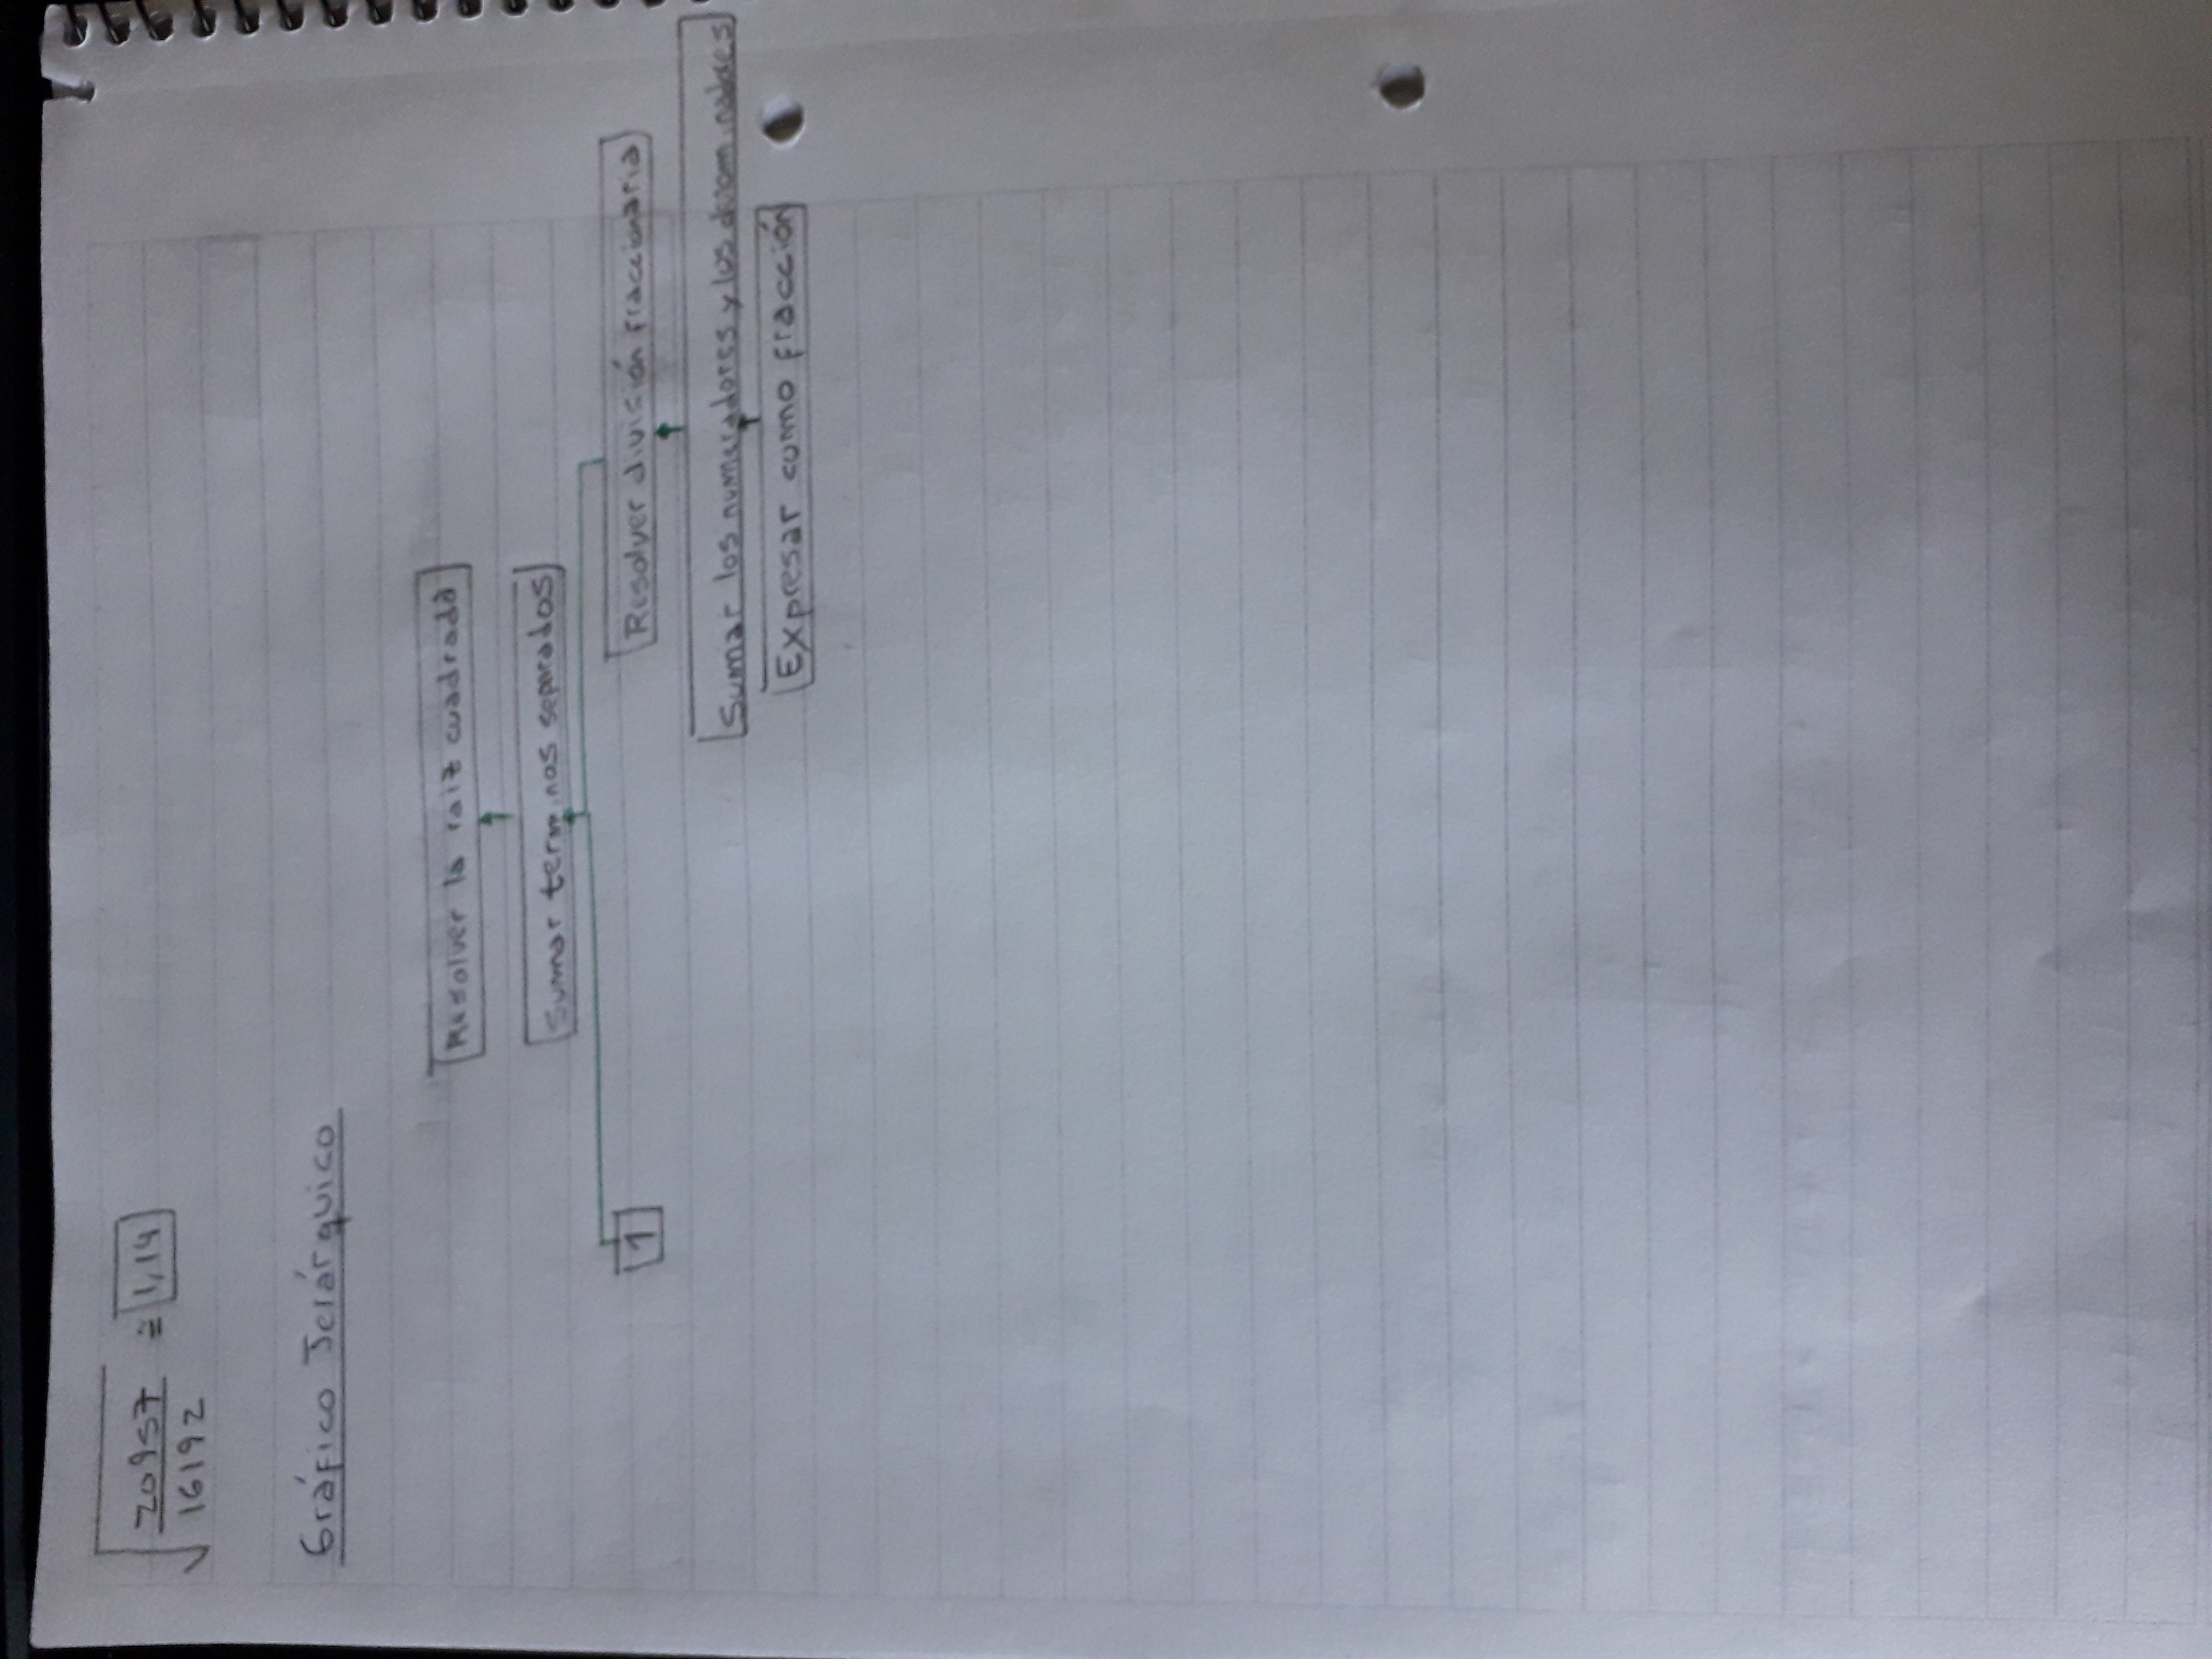 √(20957/16192) ≅ 1,14
Gráfico Jerárquico
Resolver la raiz cuadrada
Sumar terminos separados
1
Resolver división fraccionaria
Sumar los numeradores y los denominadores
Expresar como fracción